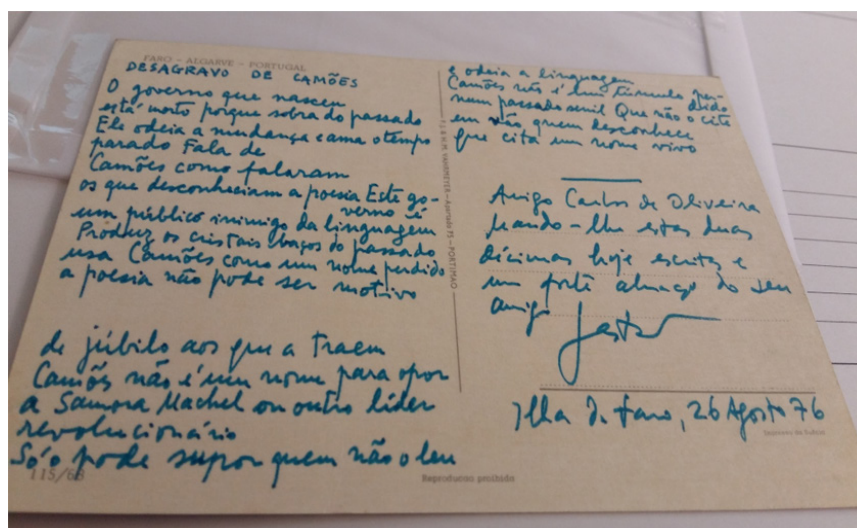 FARO – ALGARVE – PORTUGAL
DESAGRAVO DE CAMÕES
O governo que nasceu
está morto porque sobra do passado
Ele odeia a mudança e ama o tempo
parado Fala de
Camões como falaram
os que desconheciam a poesia Este go-
verno é
um público inimigo da linguagem
Produz os cristais baços do passado
usa Camões como um nome perdido
a poesia não pode ser motivo
de júbilo aos que a traem
Camões não é um nome para opor
a Samora Machel ou outro líder
revolucionário
Só o pode supor quem não o leu
115/68
e odeia a linguagem
Camões não é um túmulo per-
dido
num passado senil Que não o cite
em vão quem desconhece
que cita um nome vivo
Amigo Carlos de Oliveira
Mando-lhe estas duas
décimas hoje escritas e
um forte abraço do seu
amigo
Gastão
Ilha de Faro, 26 Agosto 76
Reprodução proibida
PORTIMÃO